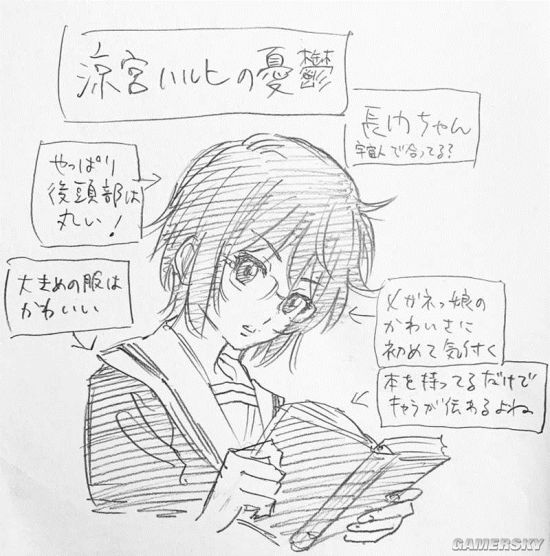 涼宮ハルヒの憂鬱
長門ちゃん
宇宙人で合ってる?
やっぱり
後頭部は
丸い!
大きめの服は
かわいい
メガネっ娘の
かわいさに
初めて気付く
本を持ってるだけで
キャラが伝わるよね
GAMERSKY